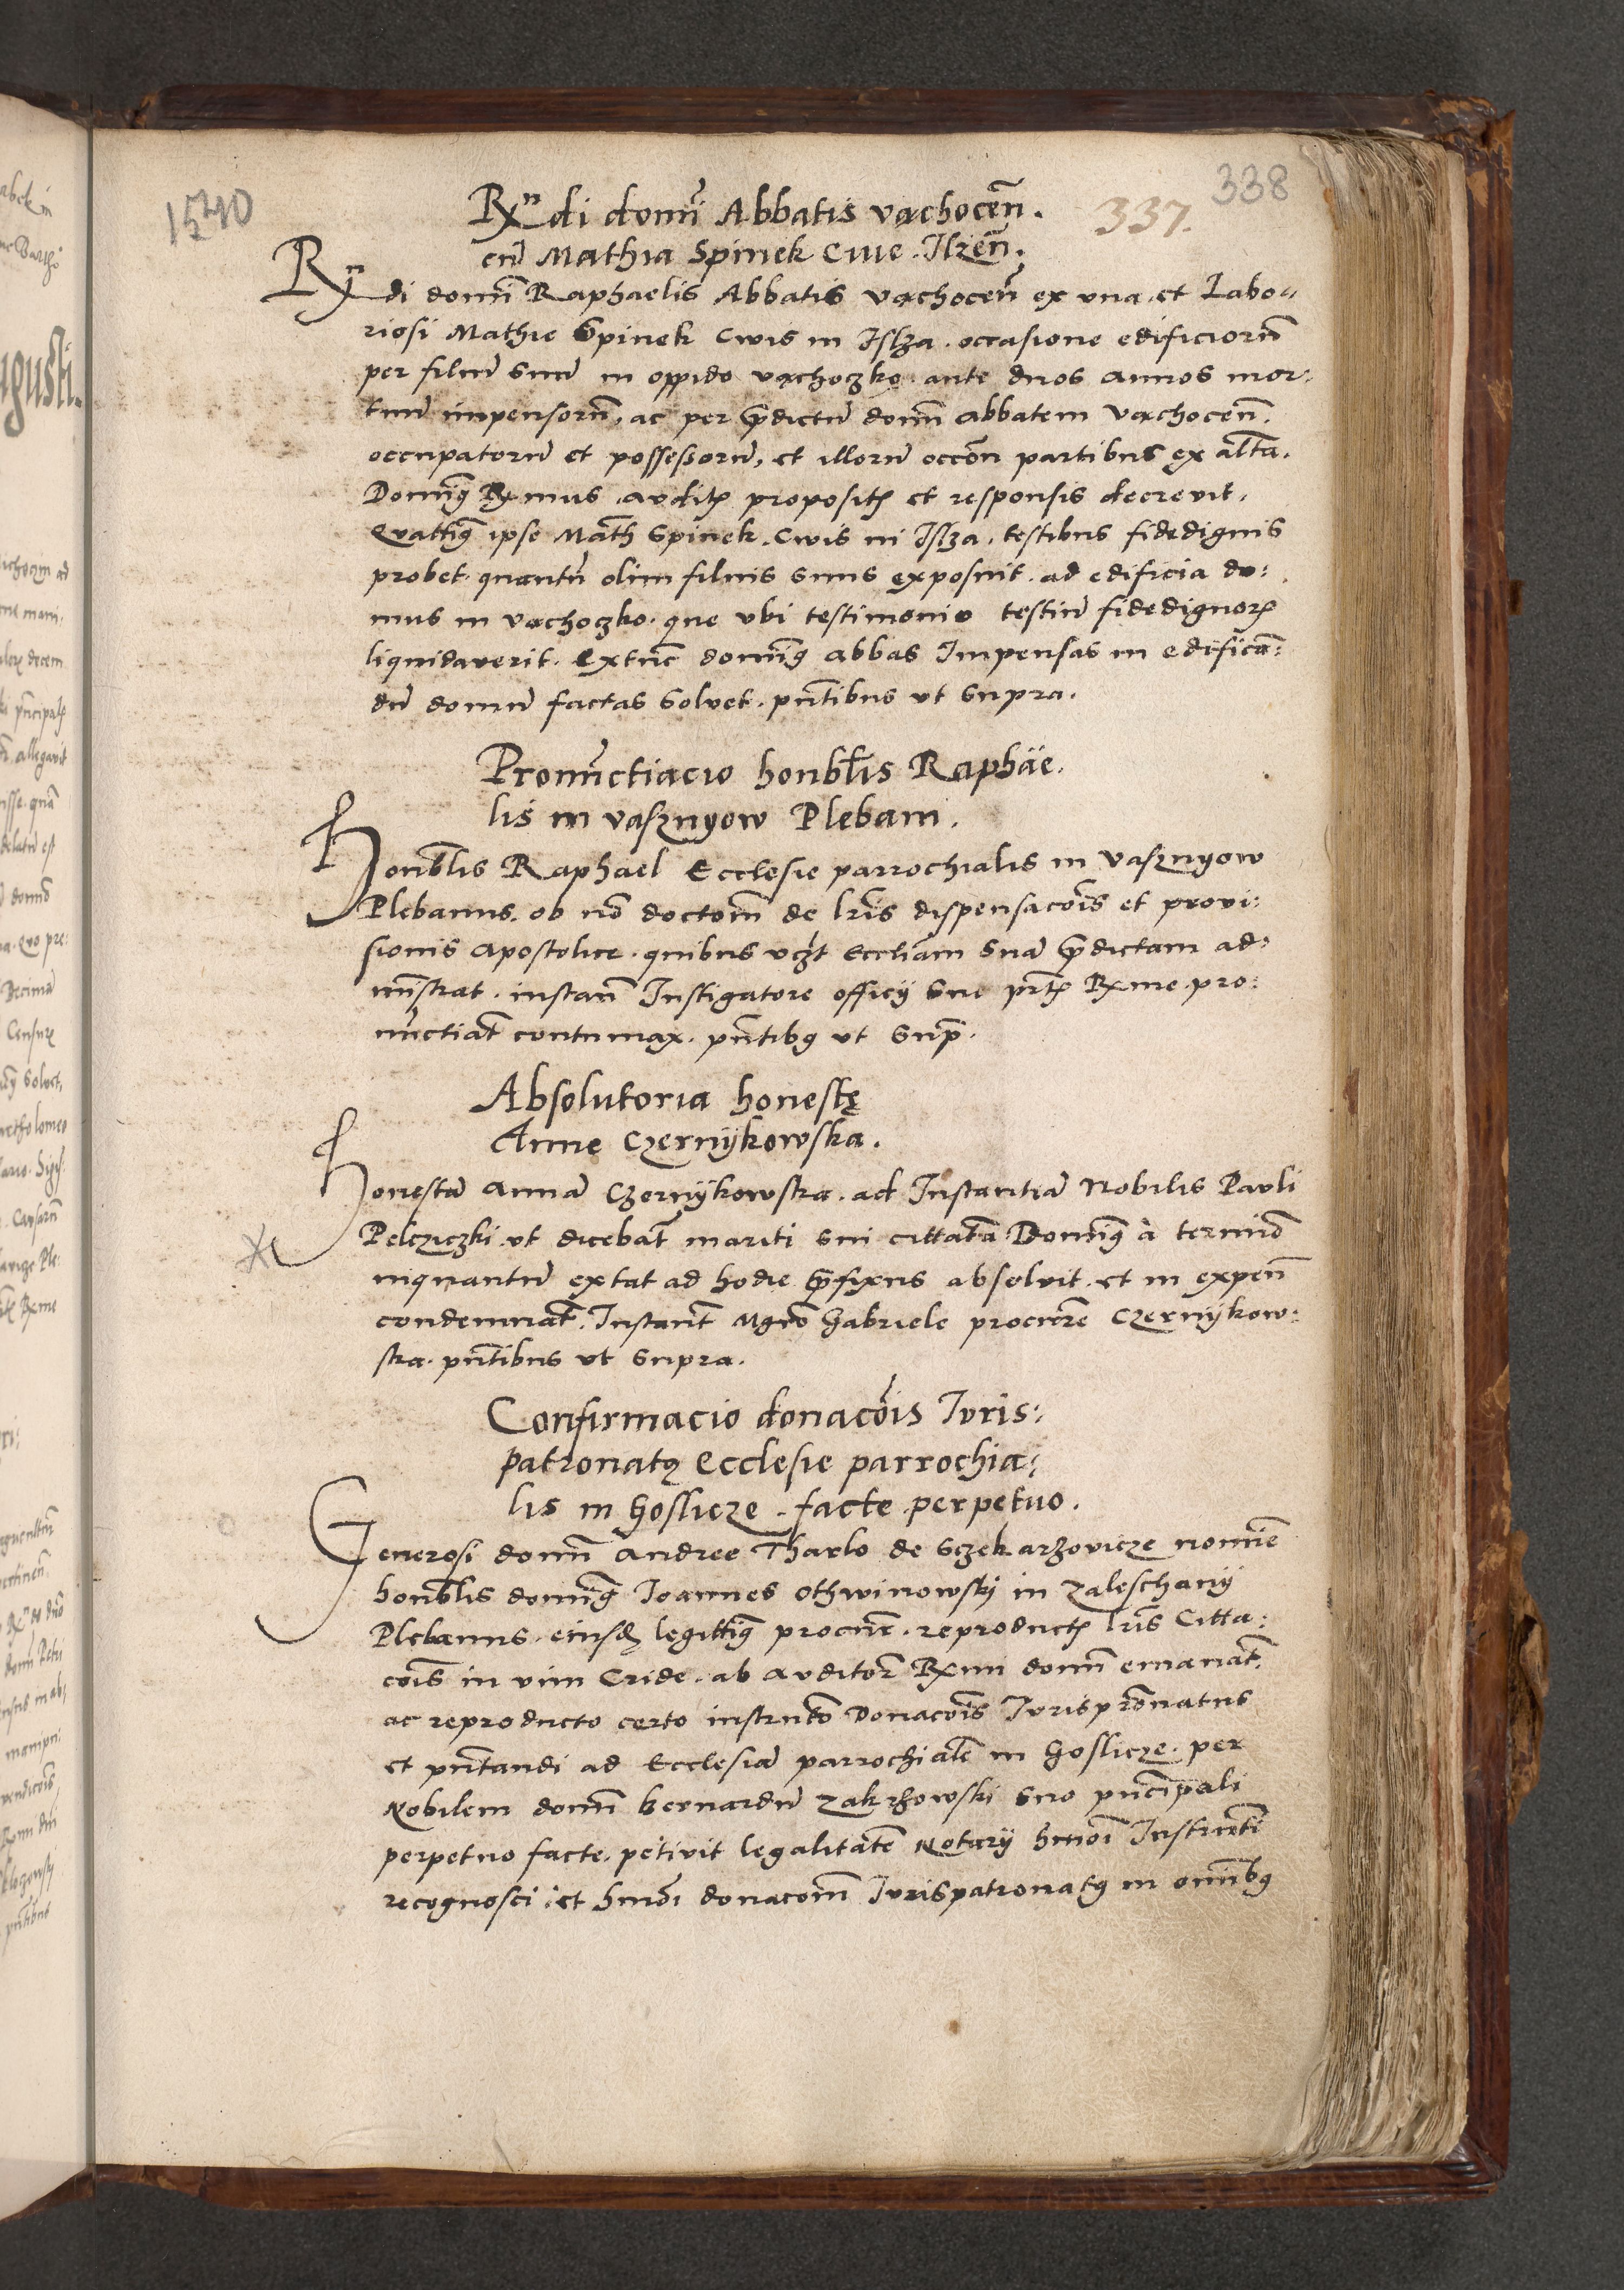 1540
338
337.
Rx̄ndi domī Abbatis vachoceñ.
cū Mathia Spinek Ciue Ilzeñ.
Rx̄ndi domī Raphaelis Abbatis vachoceñ ex vna, et Labo„
riosi Mathie Spinek Civis in Islza. occasione edificiorū
per filiū suū in oppido vachoczko. ante duos annos mor:
tuū impensorū, ac per p̄dictū domn̄ abbatem Vachoceñ.
occupatorū et possessorū, et illorū occōn partibus ex alta.
Domiq̄ Rx̄mus auditꝭ propositꝭ et responsis decrevit.
Quattiq̄ ipse Math̄ Spinek. Civis in Islza, testibus fidedignis
probet. quantū olim filius suus exposuit ad edificia do:
mus in vachoczko. que vbi testimonio testiū fidedignorꝭ
liquidaverit. Extūc domiq̄ abbas Impensas in edifica:
dū domū factas solvet. pn̄tibus vt supra.
Pronūctiacio honbl̄is Raphäe.
lis in vasznyow Plebani.
Honbl̄is Raphael Ecclesie parrochialis in vasznyow
Plebanus. ob nō doctom̄ de lr̄is dispensacōis et provi:
sionis Apostolice. quibus vcz̄t Eccliam suā p̄dictam ad:
mīstrat. instan̄ Instigatore officij sue pr̄tꝭ Rx̄me. pro:
nūctiat̄ contumax. pn̄tibꝗ vt sup̄.
Absolutoria honestę
Anne Czernÿkowska.
Honestā Annā Czernÿkowska. ad Instantiā Nobilis Pauli
Pelcziczki. vt dicebat̄ mariti sui cittatā Domiq̄ à termiō
inquantū extat ad hodie p̄fixus absoluit. et in expen̄
condemnat̄. Instant̄ Mgr̄o Gabriele procur̄e Czernÿkow:
ska. pn̄tibus vt supra.
Confirmacio donacōis Iuris:
patronatꝗ Ecclesie parrochia:
lis in Goslicze. facte perpetuo.
Generosi domn̄ Andree Tharlo de Sczekarzovicze nomīe
honbl̄is domiq̄ Joannes Othwinowskÿ in Zaleschanÿ
Plebanus. eiusđ legittiq̄ procur̄. reproductꝭ lr̄is Citta:
cōis in vim Cride. ab auditor̄ Rx̄mi domn̄ emanat̄.
ac reproducto certo instrut̄o Donacōis Jurisprōnatus
et pn̄tandi ad Ecclesiā parrochialē in Goslicze. per
Nobilem domn̄ bernardū Zakrzowski suo pn̄cipali
perpetuo facte. petivit legalitatē Notarij hmōi Instrut̄i
recognosci: et hmōi donacom̄ Jurispatronatꝗ in omībꝗ